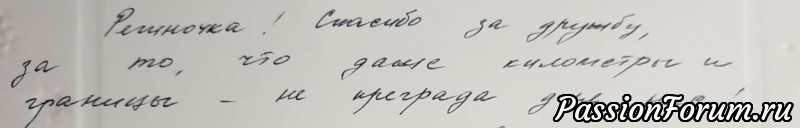 Региночка! Спасибо за дружбу,
за то, что даже километры и
границы - не преграда для
PassionForum.ru